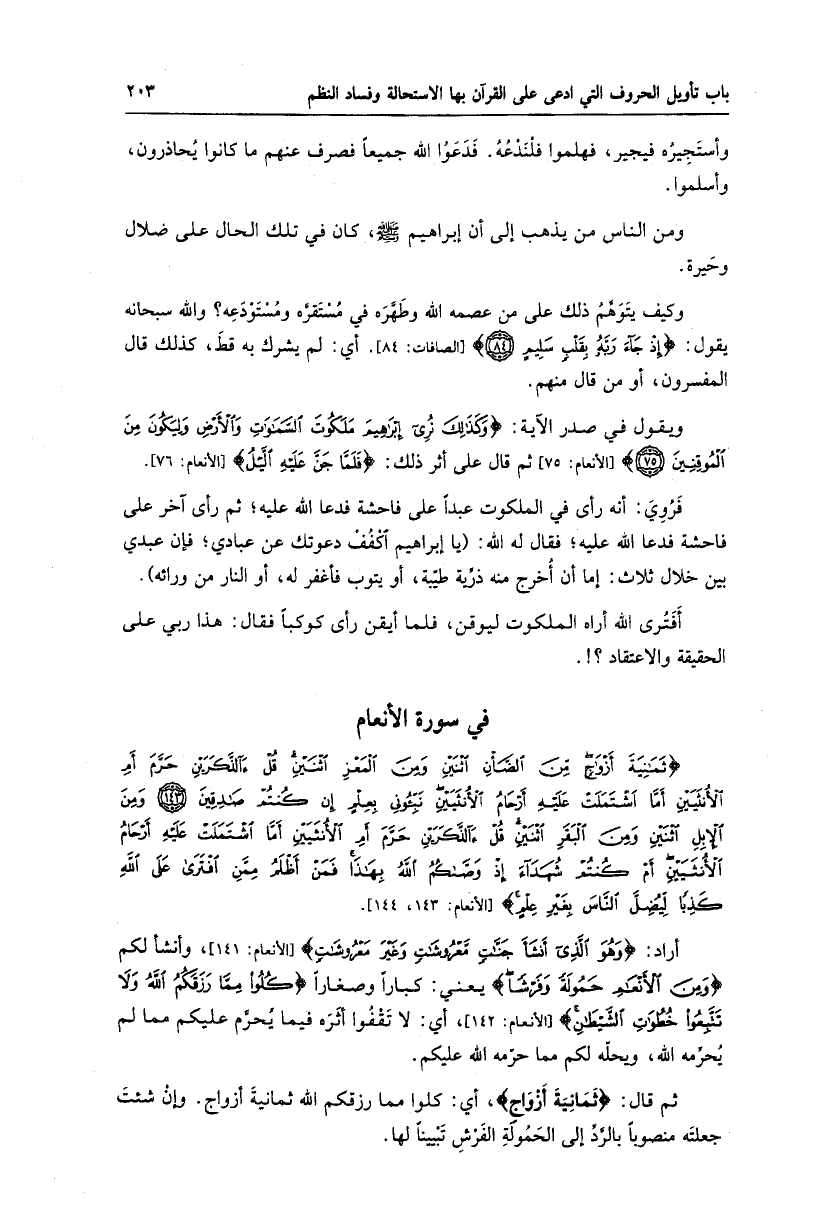 باب تأويل الحروف التي ادعى على القرآن بها الاستحالة وفساد النظم ٢٠٣
وأستَجِيرُه فيجير، فهلموا فلْنَدْعُهُ. فَدَعَوُا الله جميعاً فصرف عنهم ما كانوا يُحاذرون،
وأسلموا.
ومن الناس من يذهب إلى أن إبراهيم ﷺ، كان في تلك الحال على ضلال
وحَيرة.
وكيف يتَوَهَّمُ ذلك على من عصمه الله وطَهَّرَه في مُسْتَقرِّه ومُسْتَوْدَعِه؟ والله سبحانه
يقول: ﴿إِذْ جَآءَ رَبَّهُۥ بِقَلْبٍ سَلِيمٍ ٨٤﴾ [الصافات: ٨٤]. أي: لم يشرك به قطّ، كذلك قال
المفسرون، أو من قال منهم.
ويقول في صدر الآية: ﴿وَكَذَٰلِكَ نُرِىٓ إِبْرَٰهِيمَ مَلَكُوتَ ٱلسَّمَٰوَٰتِ وَٱلْأَرْضِ وَلِيَكُونَ مِنَ
ٱلْمُوقِنِينَ ٧٥﴾ [الأنعام: ٧٥] ثم قال على أثر ذلك: ﴿فَلَمَّا جَنَّ عَلَيْهِ ٱلَّيْلُ﴾ [الأنعام: ٧٦].
فَرُوِيَ: أنه رأى في الملكوت عبداً على فاحشة فدعا الله عليه؛ ثم رأى آخر على
فاحشة فدعا الله عليه؛ فقال له الله: (يا إبراهيم ٱكْفُفْ دعوتك عن عبادي؛ فإن عبدي
بين خلال ثلاث: إما أن أُخرج منه ذرِّية طيّبة، أو يتوب فأغفر له، أو النار من ورائه).
أَفَتُرى الله أراه الملكوت ليوقن، فلما أيقن رأى كوكباً فقال: هذا ربي على
الحقيقة والاعتقاد ؟!.
في سورة الأنعام
﴿ثَمَٰنِيَةَ أَزْوَٰجٍ مِّنَ ٱلضَّأْنِ ٱثْنَيْنِ وَمِنَ ٱلْمَعْزِ ٱثْنَيْنِ قُلْ ءَآلذَّكَرَيْنِ حَرَّمَ أَمِ
ٱلْأُنثَيَيْنِ أَمَّا ٱشْتَمَلَتْ عَلَيْهِ أَرْحَامُ ٱلْأُنثَيَيْنِ نَبِّـُٔونِى بِعِلْمٍ إِن كُنتُمْ صَٰدِقِينَ ١٤٣ وَمِنَ
ٱلْإِبِلِ ٱثْنَيْنِ وَمِنَ ٱلْبَقَرِ ٱثْنَيْنِ قُلْ ءَآلذَّكَرَيْنِ حَرَّمَ أَمِ ٱلْأُنثَيَيْنِ أَمَّا ٱشْتَمَلَتْ عَلَيْهِ أَرْحَامُ
ٱلْأُنثَيَيْنِ أَمْ كُنتُمْ شُهَدَآءَ إِذْ وَصَّىٰكُمُ ٱللَّهُ بِهَٰذَا فَمَنْ أَظْلَمُ مِمَّنِ ٱفْتَرَىٰ عَلَى ٱللَّهِ
كَذِبًا لِّيُضِلَّ ٱلنَّاسَ بِغَيْرِ عِلْمٍ﴾ [الأنعام: ١٤٣، ١٤٤].
أراد: ﴿وَهُوَ ٱلَّذِىٓ أَنشَأَ جَنَّٰتٍ مَّعْرُوشَٰتٍ وَغَيْرَ مَعْرُوشَٰتٍ﴾ [الأنعام: ١٤١]، وأنشأ لكم
﴿وَمِنَ ٱلْأَنْعَٰمِ حَمُولَةً وَفَرْشًا﴾ يعني: كباراً وصغاراً ﴿كُلُوا۟ مِمَّا رَزَقَكُمُ ٱللَّهُ وَلَا
تَتَّبِعُوا۟ خُطُوَٰتِ ٱلشَّيْطَٰنِ﴾ [الأنعام: ١٤٢]، أي: لا تَقْفُوا أثَرَه فيما يُحرَّم عليكم مما لم
يُحرِّمه الله، ويحلّه لكم مما حرّمه الله عليكم.
ثم قال: ﴿ثَمَانِيَةَ أَزْوَاجٍ﴾، أي: كلوا مما رزقكم الله ثمانيةَ أزواج. وإنْ شئتَ
جعلتَه منصوباً بالرَّدِّ إلى الحَمُولَةِ الفَرْشِ تَبْييناً لها.